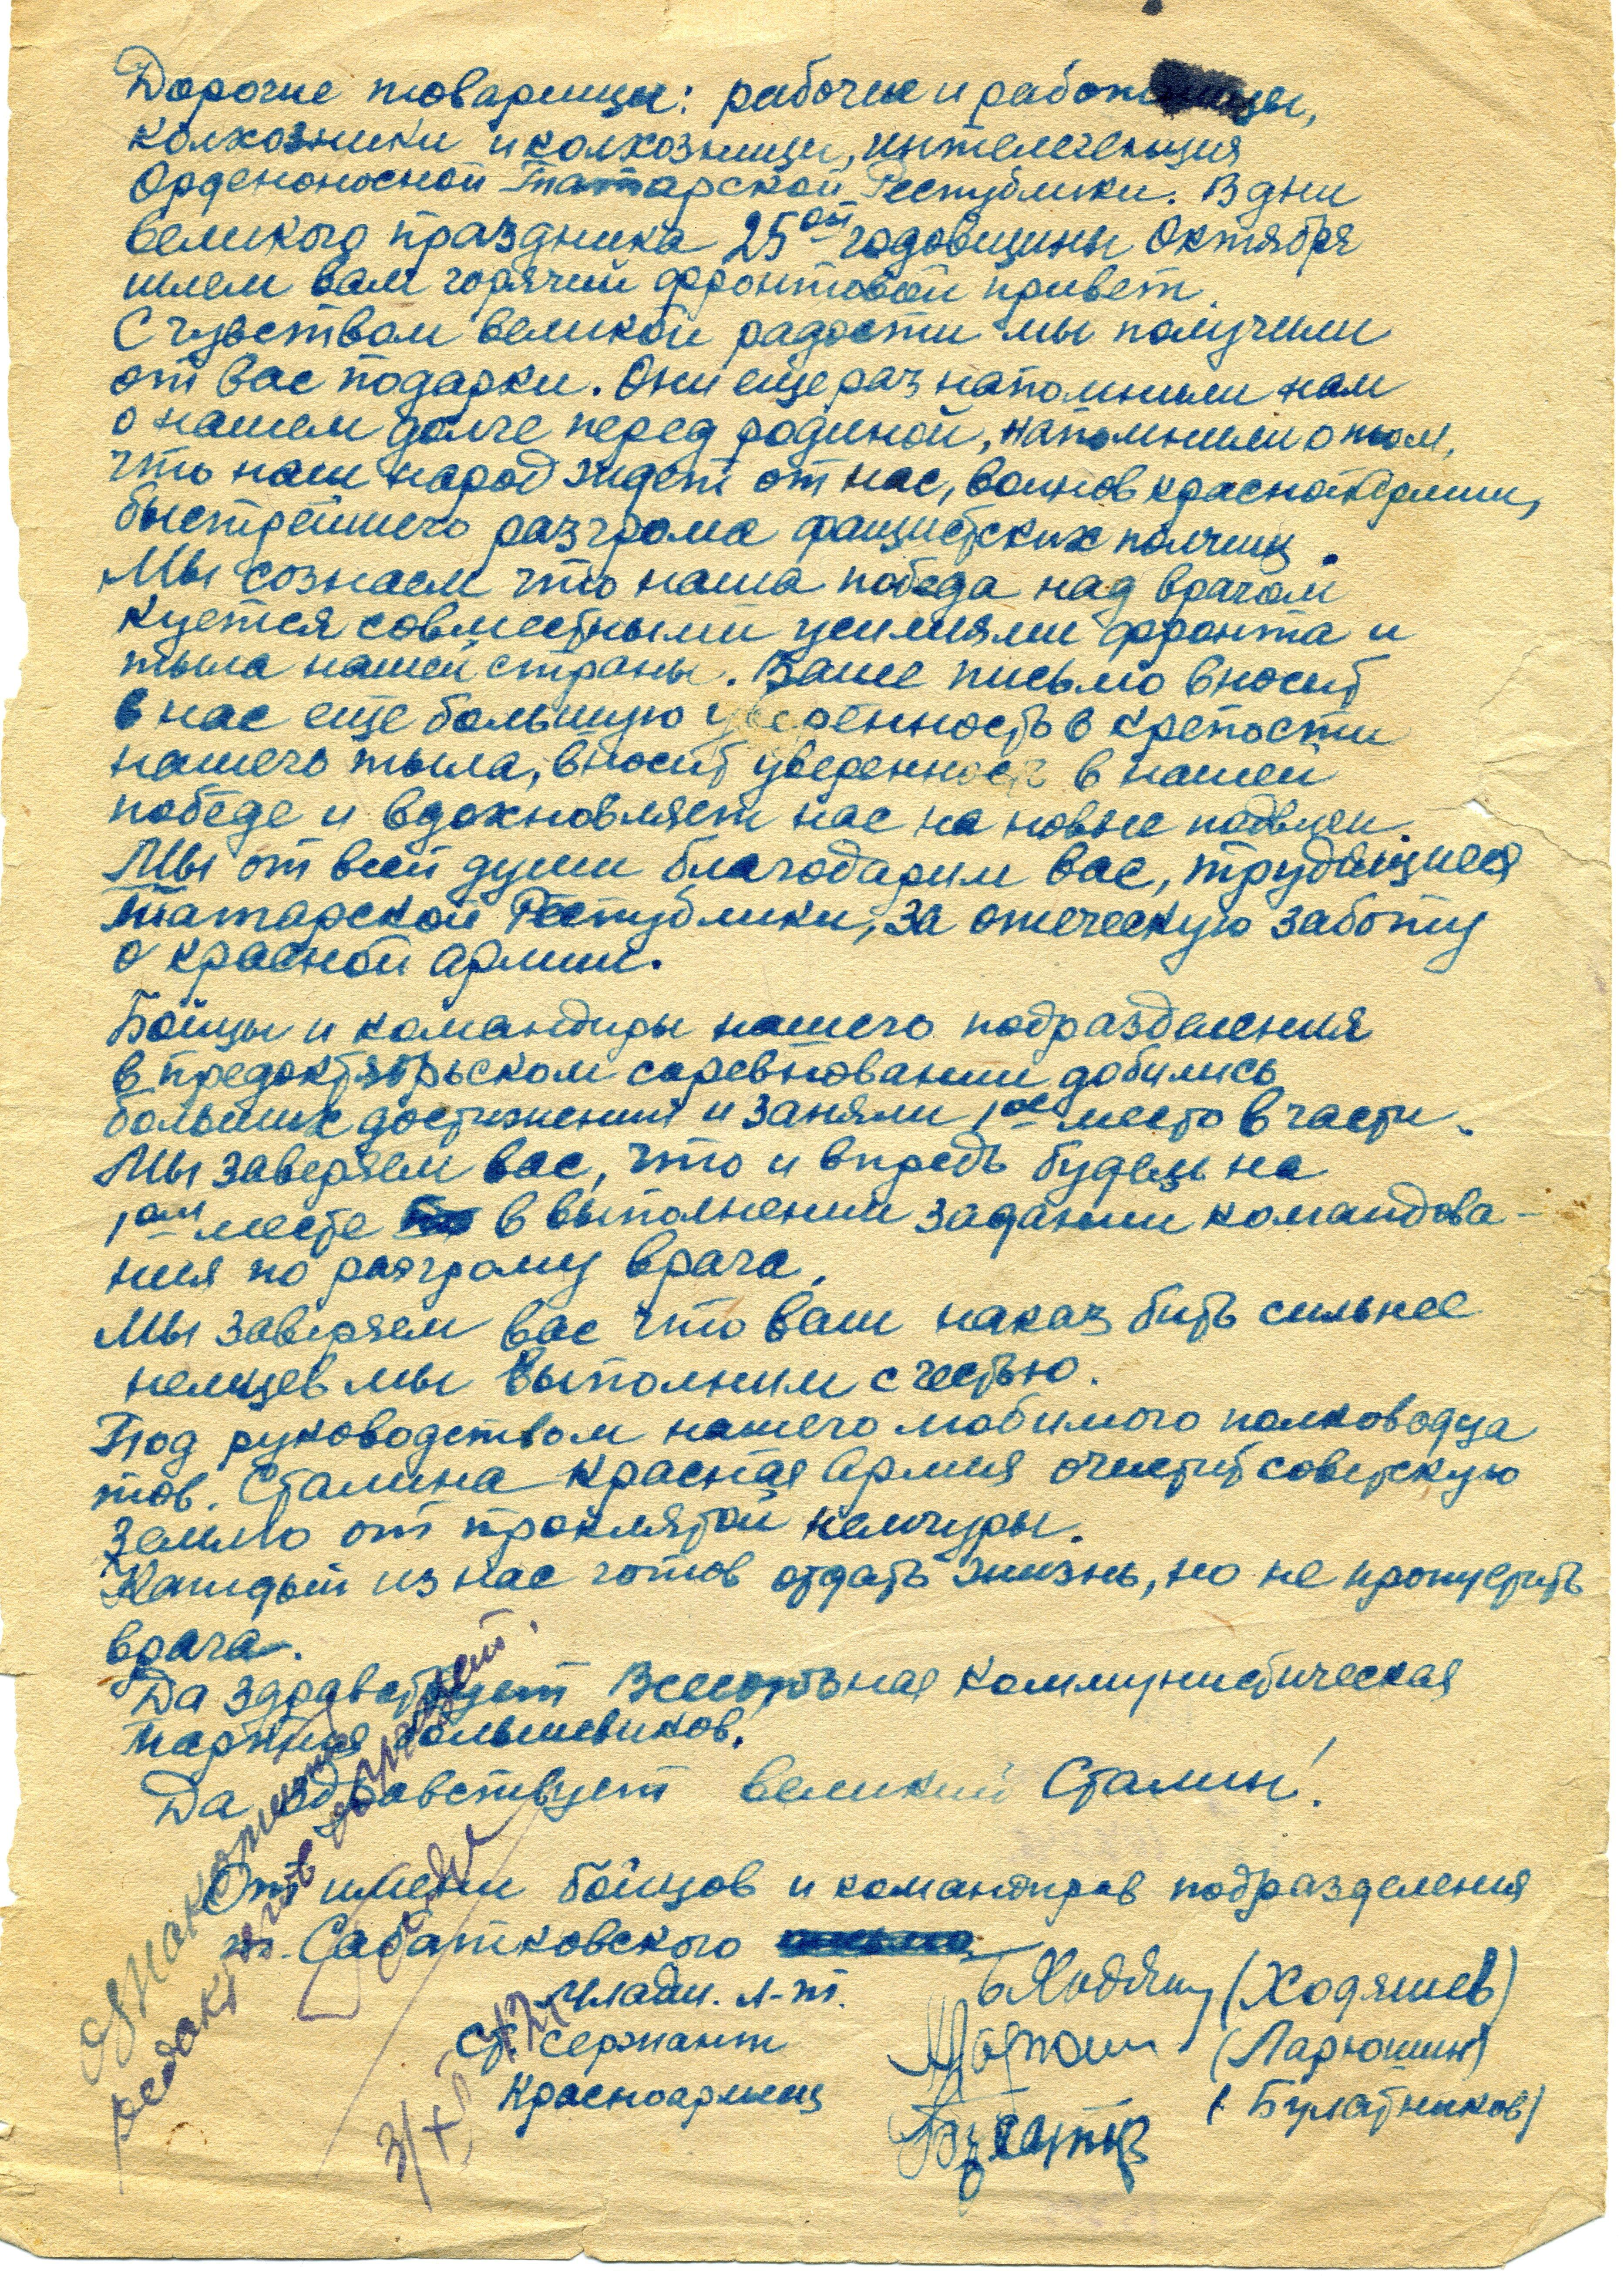 Дорогие товарищи: рабочие и работницы,
колхозники и колхозницы, интелегенция
Орденоносной Татарской Республики. В дни
великого праздника 25ой годовщины Октября
шлем вам горячий фронтовой привет.
С чувством великой радости мы получили
от вас подарки. Они еще раз напомнили нам
о нашем долге перед родиной, напомнили о том,
что наш народ ждет от нас, воинов красной Армии,
быстрейшего разгрома фашистских полчищ.
Мы сознаем что наша победа над врагом
куется совместными усилиями фронта и
тыла нашей страны. Ваше письмо вносит
в нас еще большую уверенность в крепости
нашего тыла, вносит уверенность в нашей
победе и вдохновляет нас на новые подвиги.
Мы от всей души благодарим вас, трудящиеся
Татарской Республики, за отеческую заботу
о красной армии.
Бойцы и командиры нашего подразделения
в предоктябрьском соревновании добились
больших достижений и заняли 1ое место в части.
Мы заверяем вас, что и впредь будем на
1ом месте в выполнении задании командова-
ния по разгрому врага.
Мы заверяем вас что ваш наказ бить сильнее
немцев мы выполним с честью.
Под руководством нашего любимого полководца
тов. Сталина Красная Армия очистит советскую
землю от проклятой немчуры.
Каждый из нас готов отдать жизнь, но не пропустить
врага.
Да здравствует Всесоюзная Коммунистическая
партия большевиков!
Да здравствует великий Сталин!
От имени бойцов и командиров подразделения
т. Сабатковского
Младш. л-т. (Ходяшев)
Ст. сержант (Ларюшин)
Красноармеец (Булатников)